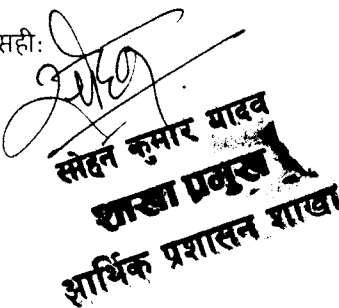 सही:
सोहन कुमार यादव
शाखा प्रमुख
आर्थिक प्रशासन शाखा